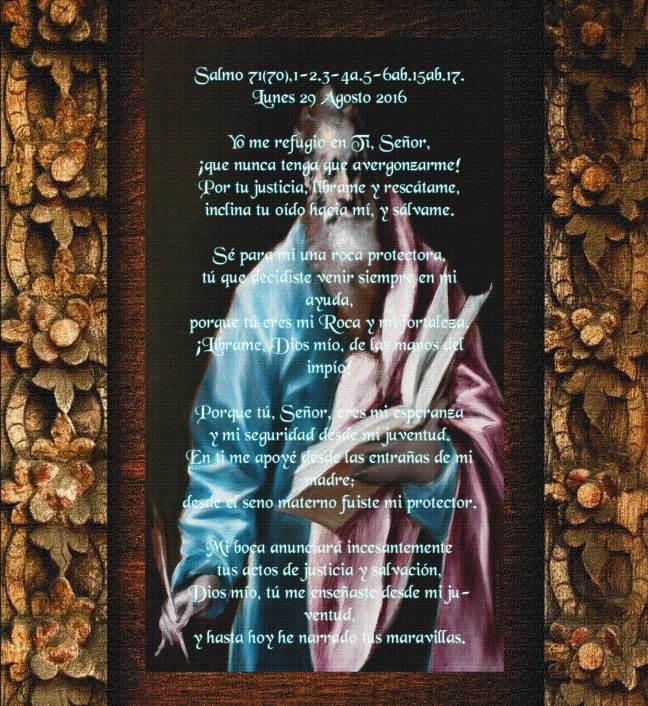 Salmo 71(70),1-2.3-4a.5-6ab.15ab.17.
Lunes 29 Agosto 2016
Yo me refugio en Ti, Señor,
¡que nunca tenga que avergonzarme!
Por tu justicia, líbrame y rescátame,
inclina tu oído hacia mi, y sálvame.
Sé para mi una roca protectora,
tú que decidiste venir siempre en mi
ayuda,
porque tú eres mi Roca y mi fortaleza.
¡Líbrame, Dios mío, de las manos del
impío!
Porque tú, Señor, eres mi esperanza
y mi seguridad desde mi juventud.
En ti me apoyé desde las entrañas de mi
madre;
desde el seno materno fuiste mi protector.
Mi boca anunciará incesantemente
tus actos de justicia y salvación,
Dios mío, tú me enseñaste desde mi ju-
ventud,
y hasta hoy he narrado tus maravillas.